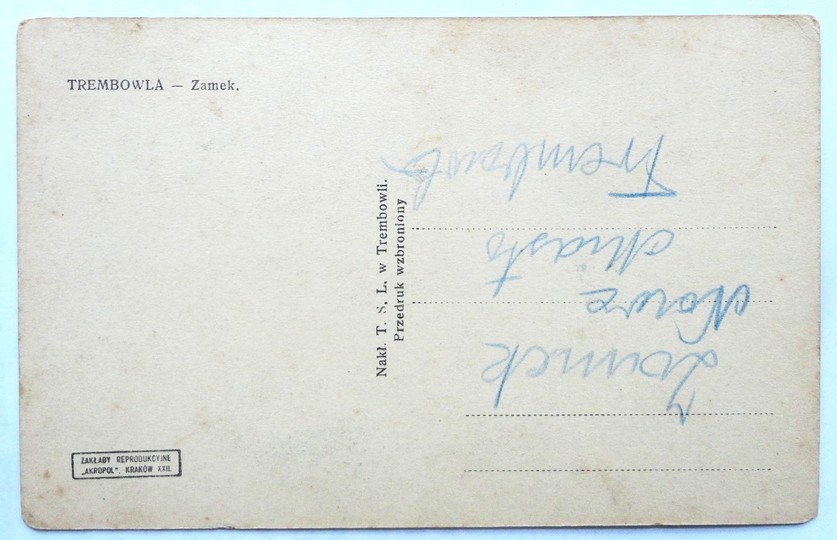 TREMBOWLA — Zamek.
Nakł. T. S. L. w Trembowli.
Przedruk wzbroniony
Zamek
Nowe
Miasto
Trembowla
ZAKŁADY REPRODUKCYJNE
„AKROPOL”, KRAKÓW XXII.